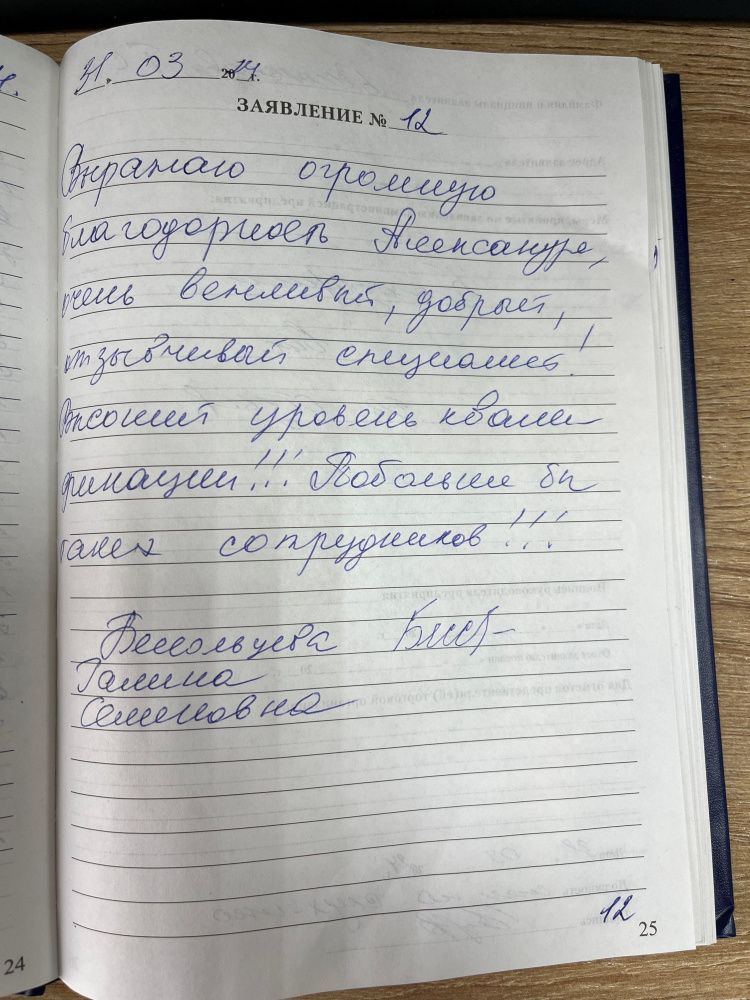 31. 03 2024г.
ЗАЯВЛЕНИЕ № 12
Выражаю огромную
благодарность Александре,
очень вежливый, добрый,
отзывчивый специалист!
Высокий уровень квали-
фикации!!! Побольше бы
таких сотрудников!!!
Галина
Семеновна
12
25
24